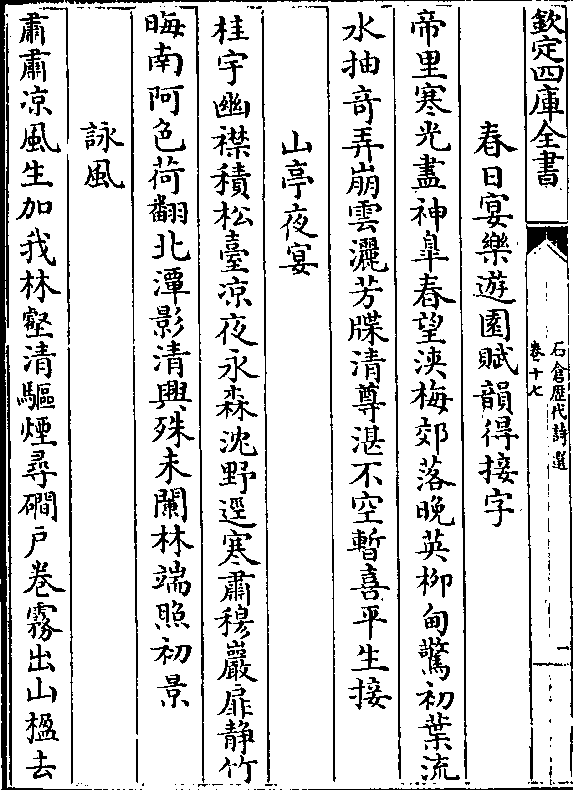 欽定四庫全書
石倉歷代詩選
卷十七
二
春日宴樂遊園賦韻得接字
帝里寒光盡神臯春望浹梅郊落晚英柳甸驚初葉流
水抽奇弄崩雲灑芳牒清尊湛不空暫喜平生接
山亭夜宴
桂宇幽襟積松臺凉夜永森沈野逕寒肅穆巖扉静竹
晦南阿色荷翻北潭影清興殊未闌林端照初景
詠風
肅肅凉風生加我林壑清驅煙尋磵戸卷霧出山楹去